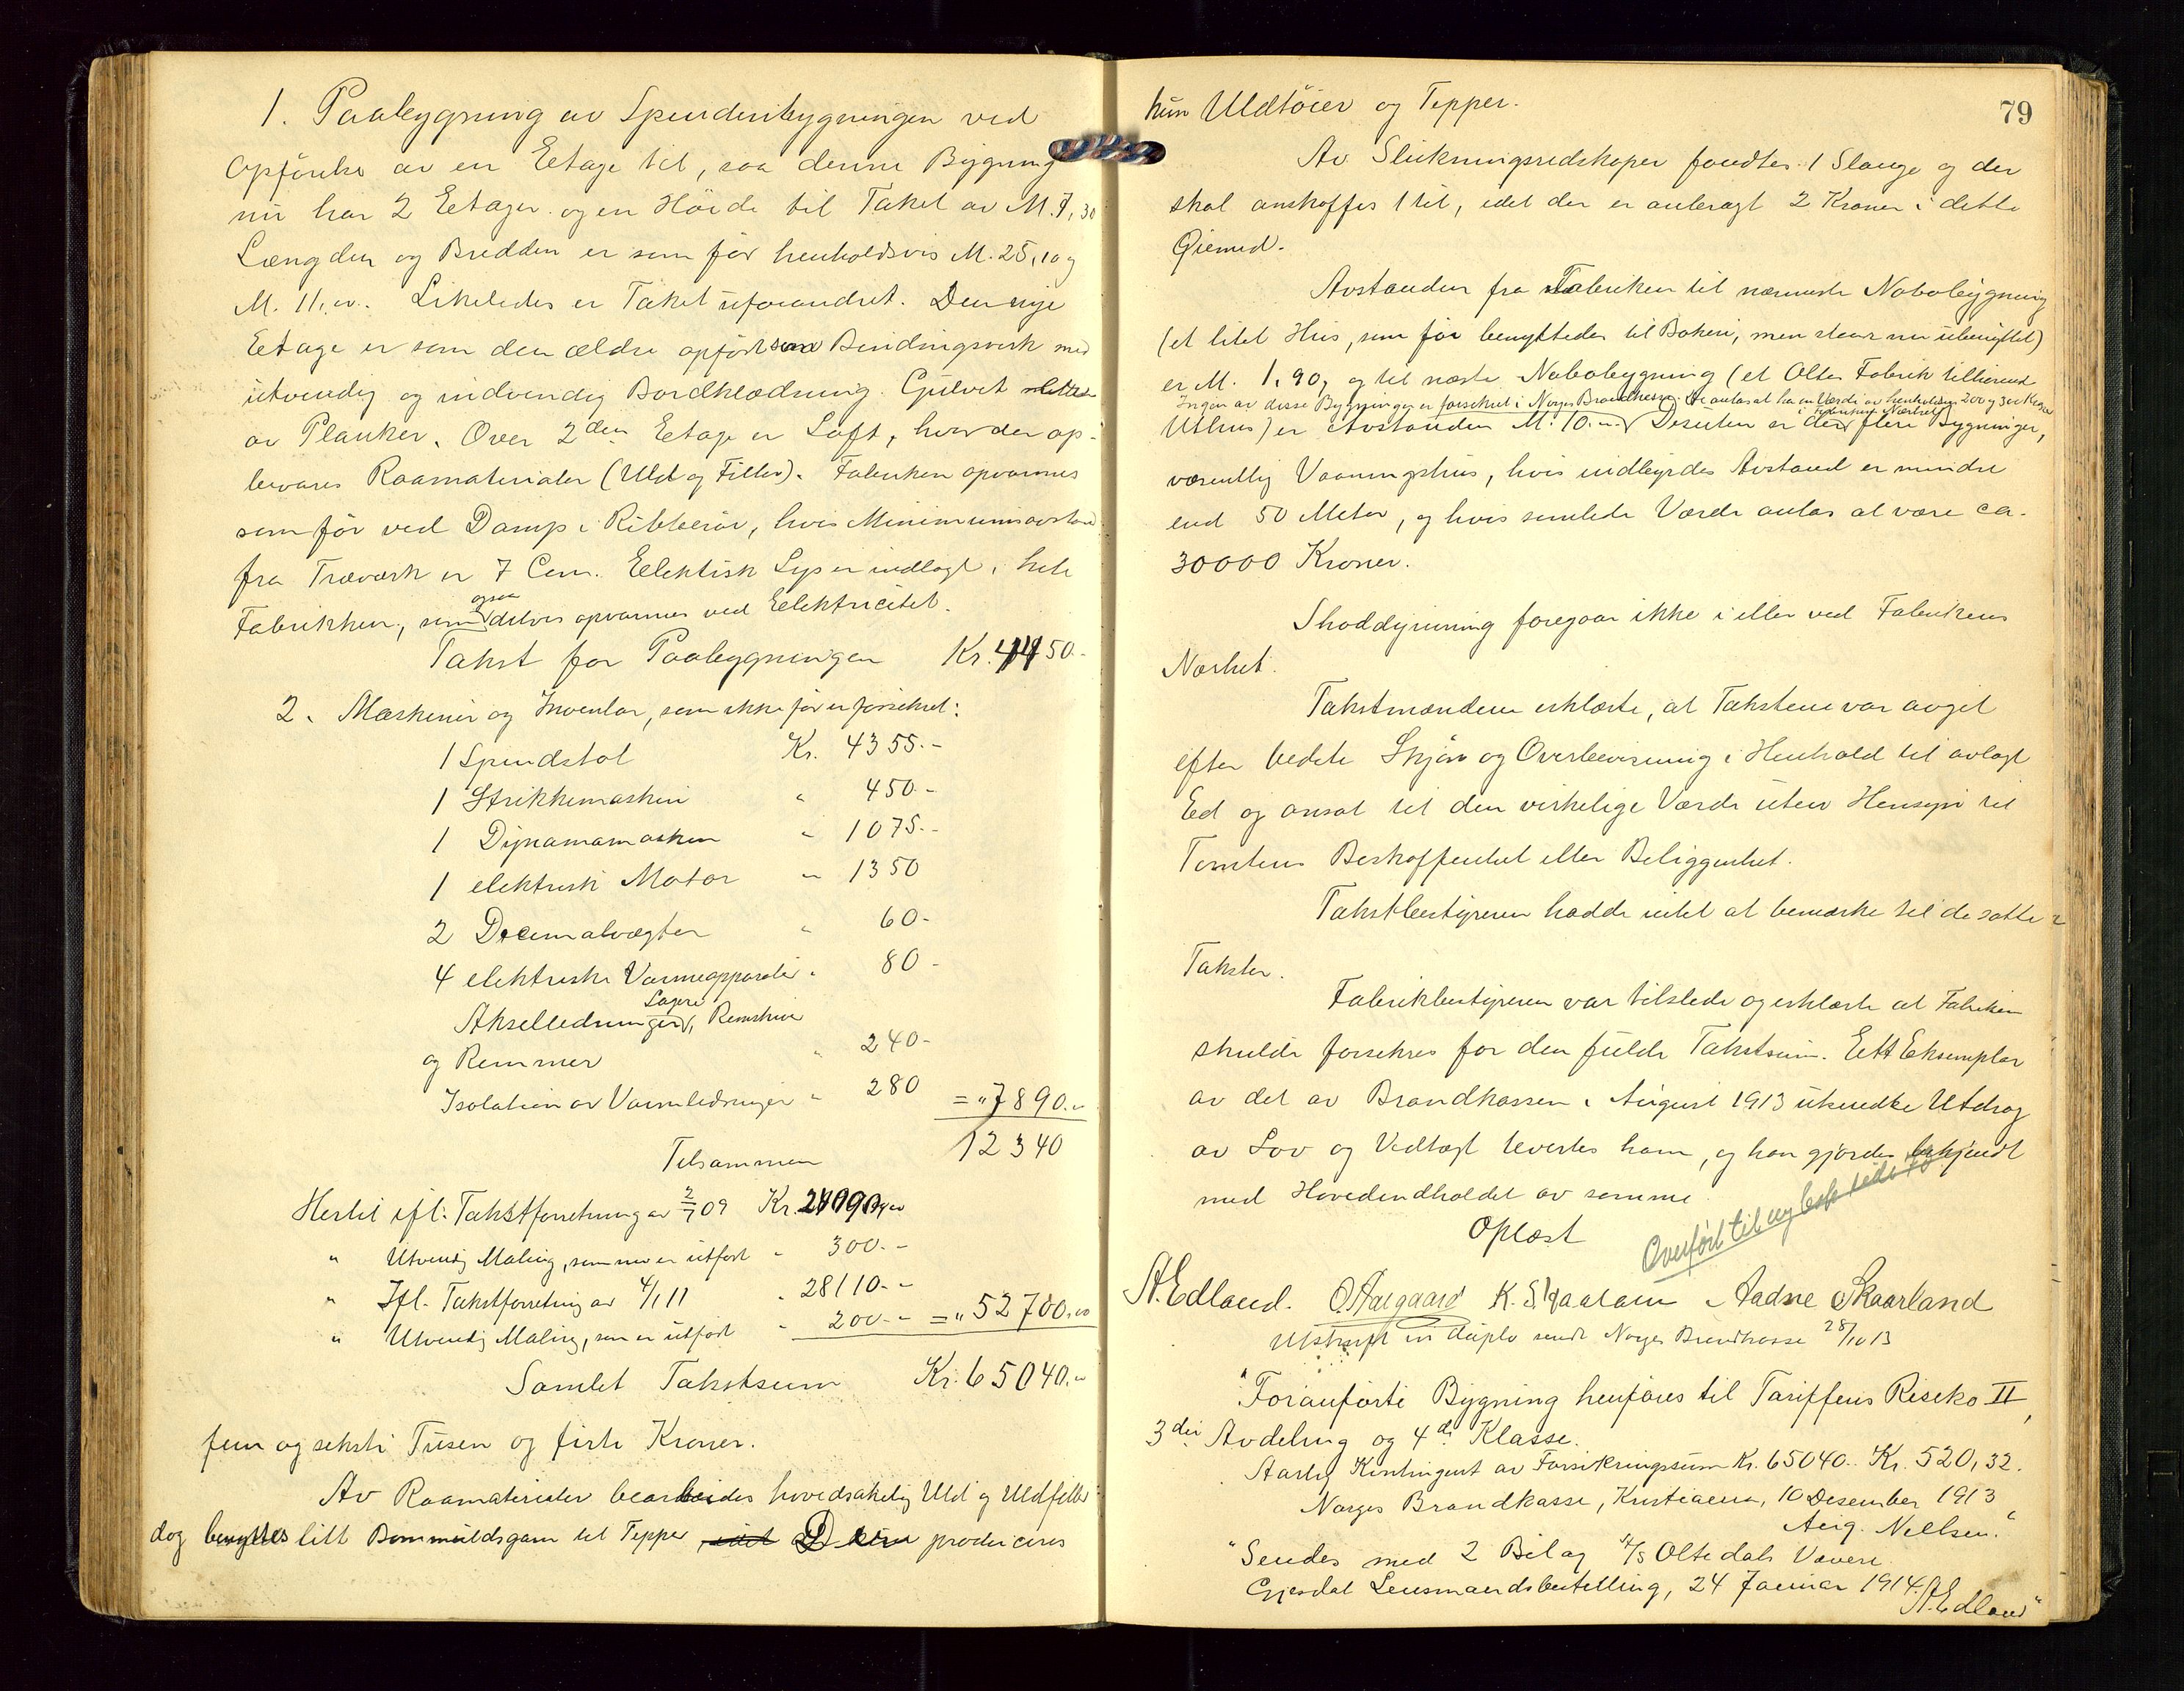 1. Paabygning av Spinderibygningen ved
Opförelse av en Eetage til, saa denne Bygning
nu har 2 Eetager og en Höide til Taket av M. 7,30
Længden og Bredden er som för henholdsvis M. 25,10 og
M. 11,00. Likeledes er Taket uforandret. Den nye
Eetage er som den ældre opfört som Bindingsverk med
utvendig og indvendig Bordklædning. Gulvet
av Planker. Over 2den Eetage er Loft, hvor der op-
bevares Raamaterialer (Uld og Filler). Fabriken opvarmes
som för ved Damp i Ribberör, hvis Minimumsavstand
fra Træværk er 7 Cem. Elektisk Lys er indlagt i hele
Fabrikken, som ogsaa delvis opvarmes ved Eelektricitet.
Takst for Paabygningen Kr. 4450.-
2. Maskiner og Inventar, som ikke för er forsikret:
1 Spindstol Kr. 4355.-
1 Strikkemaskin " 450.-
1 Dynamamaskin " 1075.-
1 elektrisk Motor " 1350
2 Decimalvægter " 60-
4 elektriske Varmeapparater " 80-
Akselledninger, Lagere, Remskiver
og Remmer " 240-
Isolation av Varmledninger " 280 = " 7890.-
Tilsammen 12340
Hertil ifl. Takstforretning av 2/7 09 Kr. 24090,00
" Utvendig Maling, som nu er utfört " 300.-
" Ifl. Takstforretning av 4/1 11 " 28110.-
" Utvendig Maling, som er utfört " 200.- = " 52700,00
Samlet Takstsum Kr. 65040.-
fem og seksti Tusen og firti Kroner.
Av Raamaterialer bearbeides hovedsakelig Uld og Uldfiller
dog benyttes litt Bommuldsgarn til Tepper, Der produceres
79
kun Uldtöier og Tepper.
Av Slukningsredskaper fandtes 1 Slange og der
skal anskaffes 1 til, idet der er anbragt 2 Kraner i dette
Öiemed.
Avstanden fra Fabriken til nærmeste Nabobygning
(et litet Hus, som för benyttedes til Bakeri, men staar nu ubenyttet)
er M. 1,90, og til næste Nabobygning (et Oltedals Fabrik tilhörende
Ingen av disse Bygninger er forsikret i Norges Brandkasse. De antas at ha en Værdi av henholdsvis 200 og 300 Kroner
Uthus) er Avstanden M. 10.00. Desuten er der i Fabrikens Nærhet flere Bygninger,
væsentlig Vaaningshus, hvis indbyrdes Avstand er mindre
end 50 Meter, og hvis samlede Værdi antas at være ca.
30000 Kroner.
Shoddyrivning foregaar ikke i eller ved Fabrikens
Nærhet.
Takstmændene erklærte, at Taksten var avgit
efter bedste Skjön og Overbevisning i Henhold til avlagt
Ed og ansat til den virkelige Værdi uten Hensyn til
Tomtens Beskaffenhet eller Beliggenhet.
Takstbestyreren hadde intet at bemærke til de satte
Takster.
Fabrikbestyreren var tilstede og erklærte at Fabriken
skulde forsikres for den fulde Takstsum. Ett Eksemplar
av det av Brandkassen i August 1913 utsendte Utdrag
av Lov og Vedtægt levertes ham, og han gjordes bekjendt
med Hovedindholdet av samme.
Oplæst
Overfört til ny bok side 10
A. Edland. O. Aalgaard K. Skaaland Aadne Skaarland
Utskrift in duplo sendt Norges Brandkasse 28/10 13
"Foranförte Bygning henföres til Tariffens Risiko II,
3die Avdeling og 4de Klasse.
Aarlig Kontingent av Forsikringssum Kr. 65040.. Kr. 520,32.
Norges Brandkasse, Kristiania, 10 Desember 1913
Nielsen."
"Sendes med 2 Bilag A/S Oltedals Væveri
Gjesdal Lensmandsbestilling, 24 Januar 1914. A. Edland"